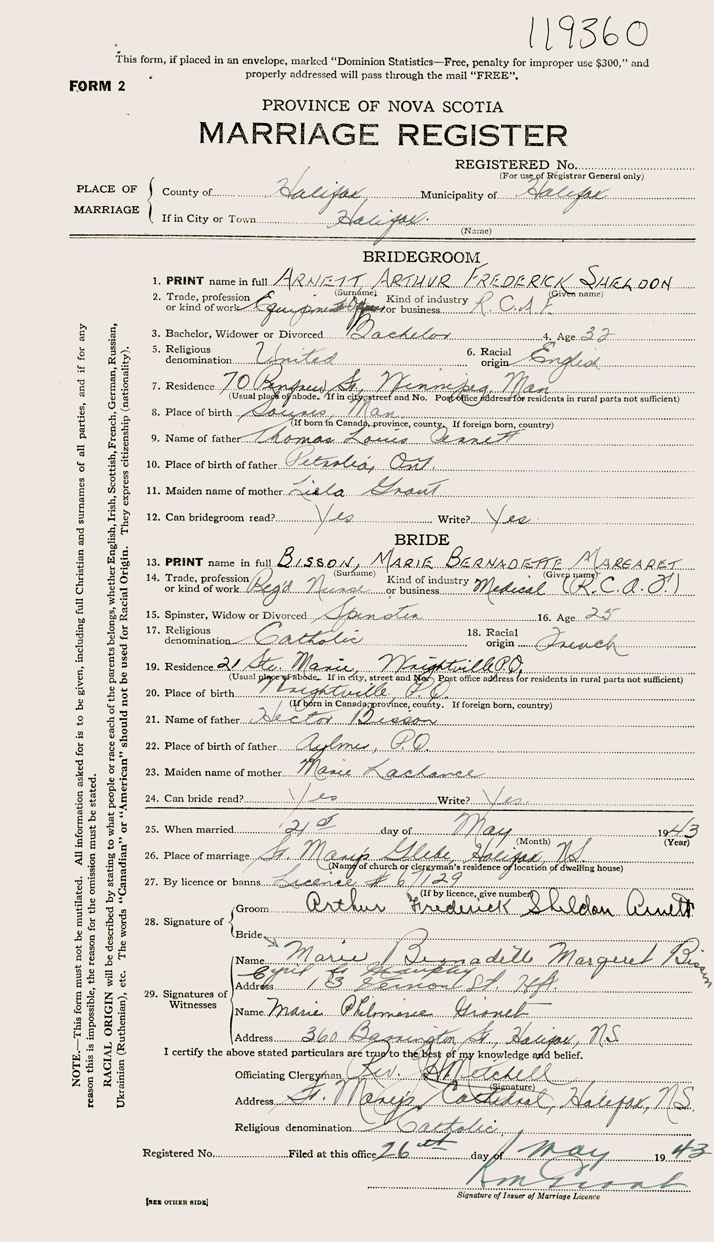 119360
This form, if placed in an envelope, marked "Dominion Statistics—Free, penalty for improper use $300," and
properly addressed will pass through the mail "FREE".
FORM 2
PROVINCE OF NOVA SCOTIA
MARRIAGE REGISTER
REGISTERED No.
(For use of Registrar General only)
PLACE OF MARRIAGE
County of Halifax Municipality of Halifax
If in City or Town Halifax.
(Name)
BRIDEGROOM
1. PRINT name in full ARNETT ARTHUR FREDERICK SHELDON
(Surname) (Given name)
2. Trade, profession or kind of work Kind of industry or business R.C.A.F.
3. Bachelor, Widower or Divorced Bachelor 4. Age 32
5. Religious denomination United 6. Racial origin English
7. Residence 70 St, Winnipeg, Man
(Usual place of abode. If in city, street and No. Post office address for residents in rural parts not sufficient)
8. Place of birth Souris, Man.
(If born in Canada, province, county. If foreign born, country)
9. Name of father Thomas Louis Arnett
10. Place of birth of father Petrolia, Ont.
11. Maiden name of mother Grant
12. Can bridegroom read? Yes Write? Yes.
BRIDE
13. PRINT name in full BISSON, MARIE BERNADETTE MARGARET
(Surname) (Given name)
14. Trade, profession or kind of work Reg'd Nurse Kind of industry or business Medical (R.C.A.F.)
15. Spinster, Widow or Divorced Spinster 16. Age 25
17. Religious denomination Catholic 18. Racial origin French
19. Residence 21 Ste. Marie, Wrightville P.Q.
(Usual place of abode. If in city, street and No. Post office address for residents in rural parts not sufficient)
20. Place of birth Wrightville, P.Q.
(If born in Canada, province, county. If foreign born, country)
21. Name of father Hector Bisson
22. Place of birth of father Aylmer, P.Q.
23. Maiden name of mother Marie Lachance
24. Can bride read? Yes Write? Yes.
25. When married 21st day of May 1943
(Month) (Year)
26. Place of marriage St. Mary's Glebe, Halifax, N.S.
(Name of church or clergyman's residence or location of dwelling house)
27. By licence or banns License # 67129
(If by licence, give number)
28. Signature of
Groom Arthur Frederick Sheldon Arnett
Bride Marie Bernadette Margaret Bisson
29. Signatures of Witnesses
Name
Address Vernon St. Hfx.
Name Marie Philomene Gionet
Address 360 St., Halifax, N.S.
I certify the above stated particulars are true to the best of my knowledge and belief.
Officiating Clergyman Rev. Mitchell
(Signature)
Address St. Mary's Cathedral, Halifax, N.S.
Religious denomination Catholic
Registered No. Filed at this office 26th day of May 1943
Signature of Issuer of Marriage Licence
[SEE OTHER SIDE]
NOTE.—This form must not be mutilated. All information asked for is to be given, including full Christian and surnames of all parties, and if for any
reason this is impossible, the reason for the omission must be stated.
RACIAL ORIGIN will be described by stating to what people or race each of the parents belongs, whether English, Irish, Scottish, French, German, Russian,
Ukrainian (Ruthenian), etc. The words "Canadian" or "American" should not be used for Racial Origin. They express citizenship (nationality).